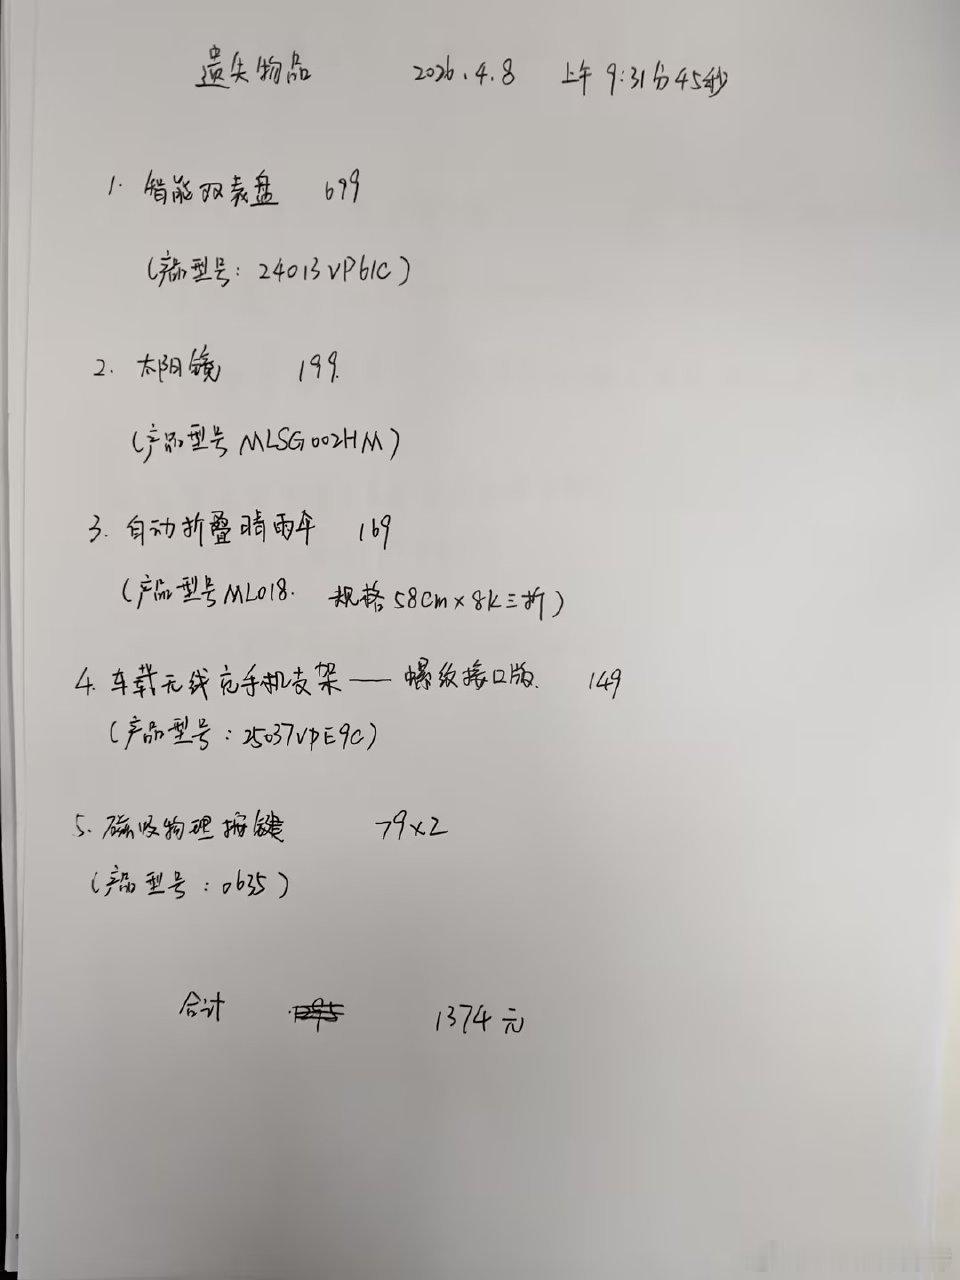 遗失物品 2026.4.8 上午 9:31分45秒
1. 智能双表盘 699
(产品型号: 24013VP61C)
2. 太阳镜 199.
(产品型号 MLSG002HM)
3. 自动折叠晴雨伞 169
(产品型号ML018. 规格58cm×8K三折)
4. 车载无线充手机支架——螺纹接口版. 149
(产品型号:25037VPE9C)
5. 磁吸物理按键 79×2
(产品型号:0635)
合计 1295 1374元